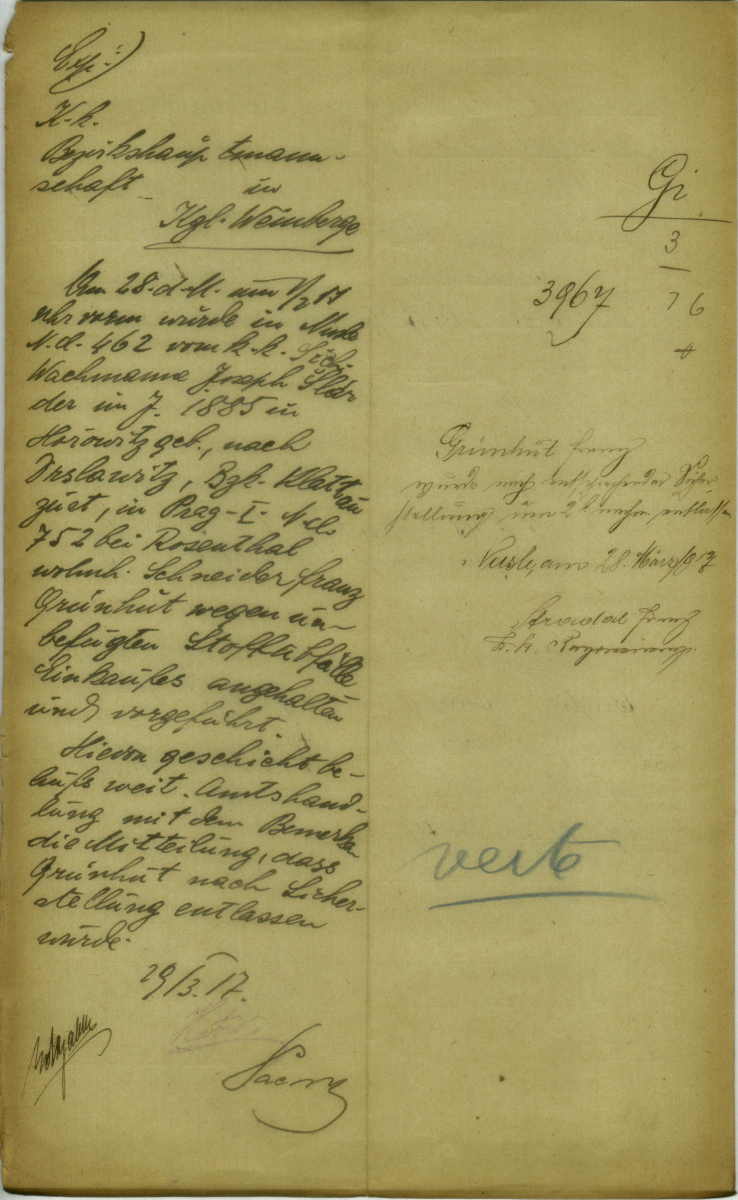 Exp:)
K.k.
Bezirkshauptmann-
schaft in
Kgl. Weinberge
Am 28. d. M. um 1/2 11
uhr vorm wurde in Nusle
N.d. 462 vom k.k. Sich.
Wachmanne Joseph
der im J. 1885 in
Horowitz geb., nach
Drslawitz, Bzk. Klattau
zust, in Prag-I- N.d.
752 bei Rosenthal
wohnh. Schneider Franz
Grünhut wegen un-
befugten Stoffabfälle
Einkaufes angehalten
und vorgeführt.
Hievon geschieht be-
hufs weit. Amtshand-
lung mit dem Bemerken
die Mitteilung, dass
Grünhut nach Sicher-
stellung entlassen
wurde.
29/3.17.
Gi
3
3967 76
4
Grünhut Franz
wurde nach Sicher
stellung um 2 h nachm. entlassen
Nusle, am 28. März 1917
Franz
k.k.